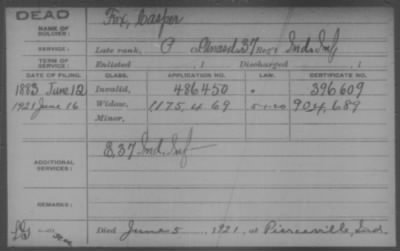 DEAD
NAME OF SOLDIER: Fox, Casper
SERVICE: Late rank, P Co. and 37 Reg't Ind. Inf
TERM OF SERVICE: Enlisted , 1 Discharged , 1
DATE OF FILING. CLASS. APPLICATION NO. LAW. CERTIFICATE NO.
1883 June 12 Invalid, 486450 396609
1921 June 16 Widow, 1175,469 5-1-20 904,689
Minor.
ADDITIONAL SERVICES: 37 Ind. Inf
REMARKS:
Died June 5 1921, at Pierceville, Ind.